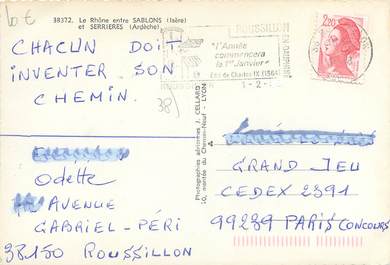 6 €
38372. Le Rhône entre SABLONS (Isère)
et SERRIERES (Ardèche)
CHACUN DOIT
INVENTER SON
CHEMIN.
38
ROUSSILLON
EN DAUPHINÉ
"l'Année
commencera
le 1er Janvier"
Edit de Charles IX (1564)
ROUSSILLON
2,20
Photographies aériennes J. CELLARD
10, montée du Chemin-Neuf - LYON
Odette
AVENUE
GABRIEL-PÉRI
38150 ROUSSILLON
GRAND JEU
CEDEX 2391
99239 PARIS CONCOURS